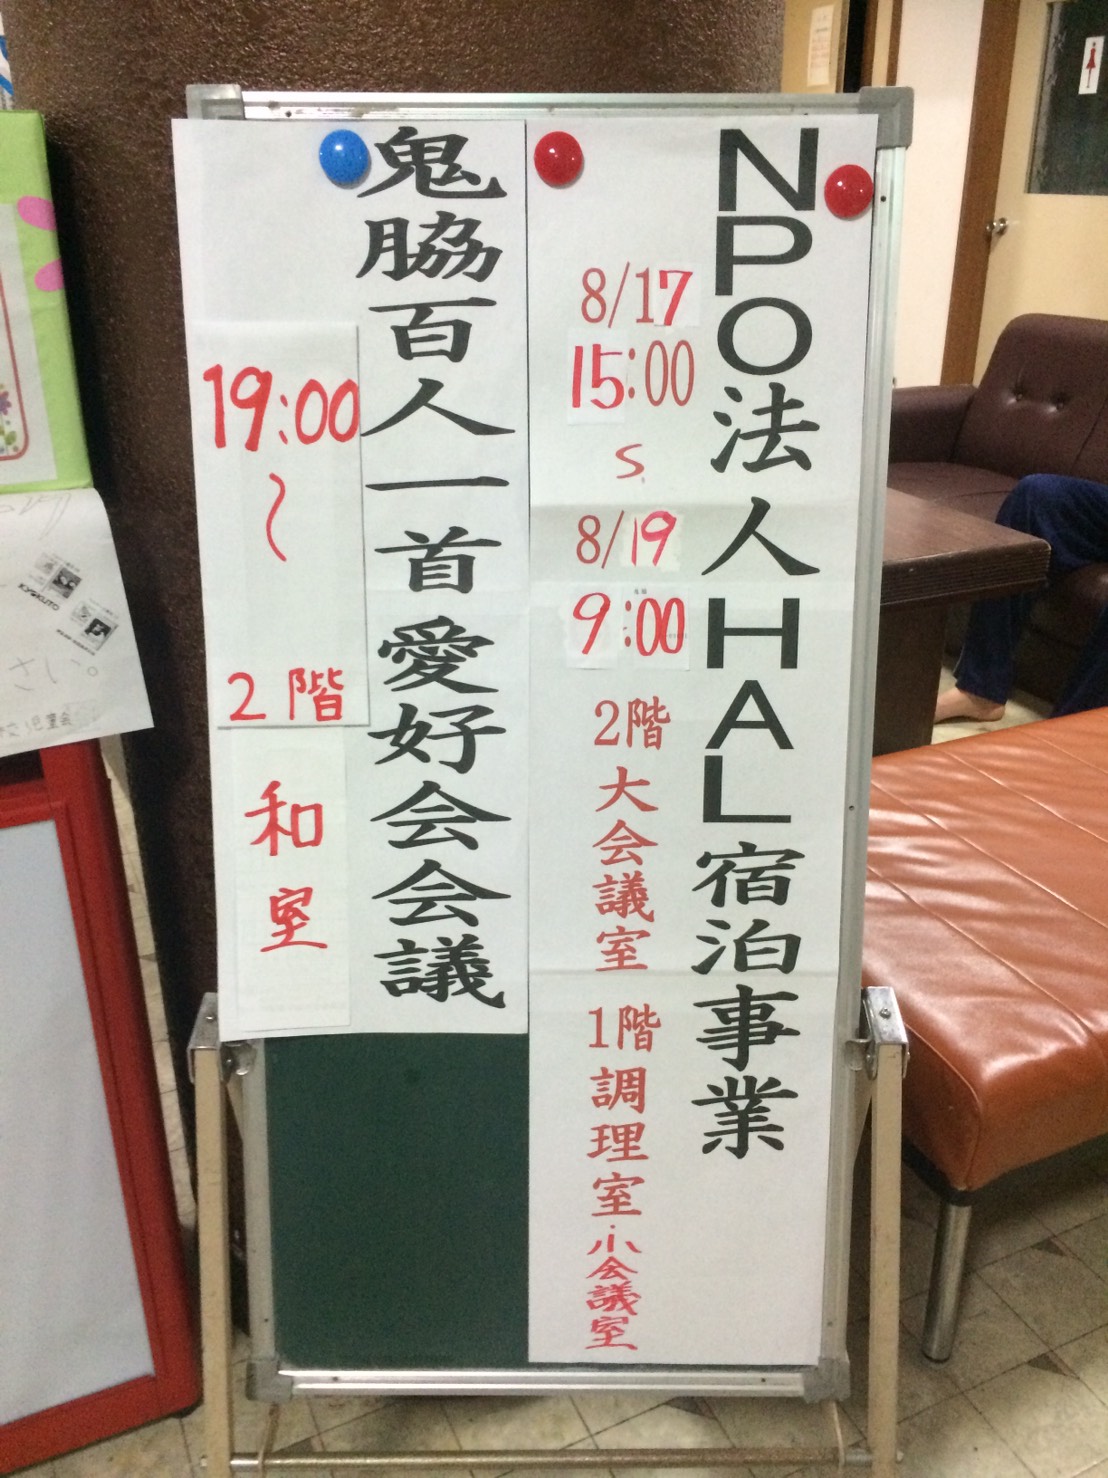 NPO法人HAL宿泊事業
8/17
15:00
〜
8/19
9:00
2階
大会議室
1階
調理室
小会議室
鬼脇百人一首愛好会会議
19:00
〜
2階
和室
KYOKUTO
さい。